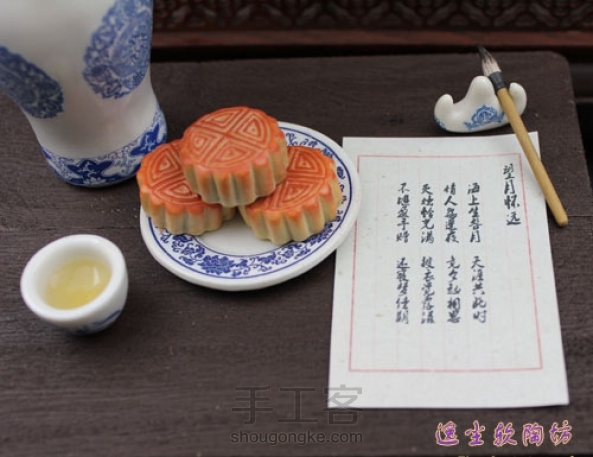 望月怀远
海上生明月 天涯共此时
情人怨遥夜 竟夕起相思
灭烛怜光满 披衣觉露滋
不堪盈手赠 还寝梦佳期
手工客
shougongke.com
逸尘软陶坊